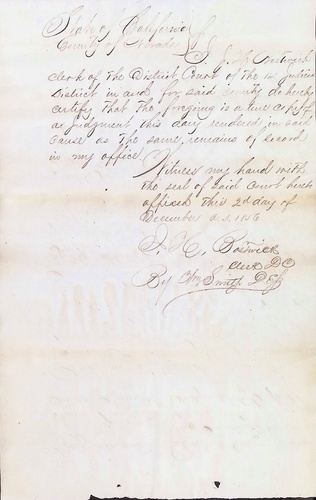 State of California
County of Nevada } SS
I, J. H. Bostwick
clerk of the District Court of the 14 Judicial
District in and for said County do hereby
certify that the forgoing is a true copy of
a Judgment this day rendered in said
cause as the same remains of record
in my office
Witness my hand with
the seal of said Court hereto
affixed this 2d day of
December A.D. 1856
J. H. Bostwick
Clerk DC
By Wm Smith Dpty